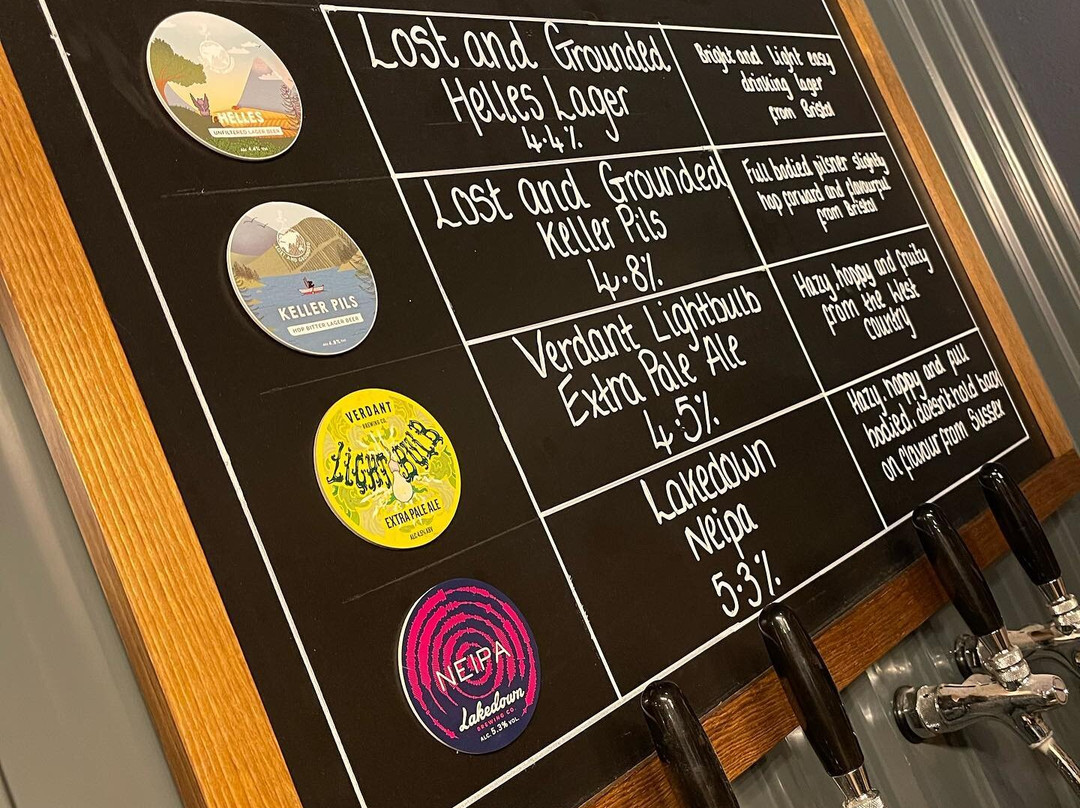 HELLES
UNFILTERED LAGER BEER
Alc 4.4% Vol
Lost and Grounded
Helles Lager
4.4%
Bright and light easy
drinking lager
from Bristol
LOST AND GROUNDED
KELLER PILS
HOP BITTER LAGER BEER
Alc 4.8% Vol
Lost and Grounded
Keller Pils
4.8%
Full bodied pilsner slightly
hop forward and flavourful
from Bristol
VERDANT
BREWING CO.
LIGHT BULB
EXTRA PALE ALE
ALC 4.5% ABV
Verdant Lightbulb
Extra Pale Ale
4.5%
Hazy, hoppy and fruity
from the West
Country
NEIPA
Lakedown
BREWING CO.
ALC. 5.3% VOL.
Lakedown
Neipa
5.3%
Hazy, hoppy and full
bodied, doesn't hold back
on flavour from Sussex